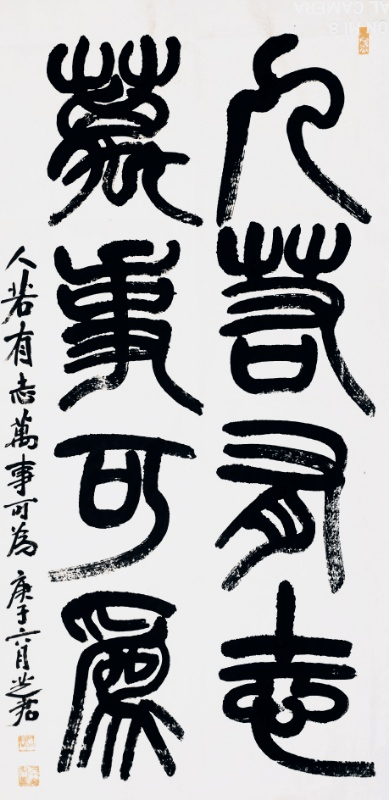 人若有志
萬事可為
人若有志萬事可為 庚子六月